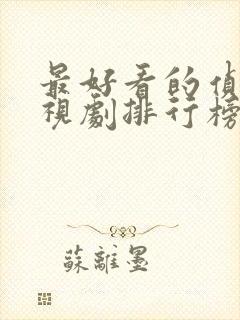 最好看的偵
視劇排行榜
蘇離墨